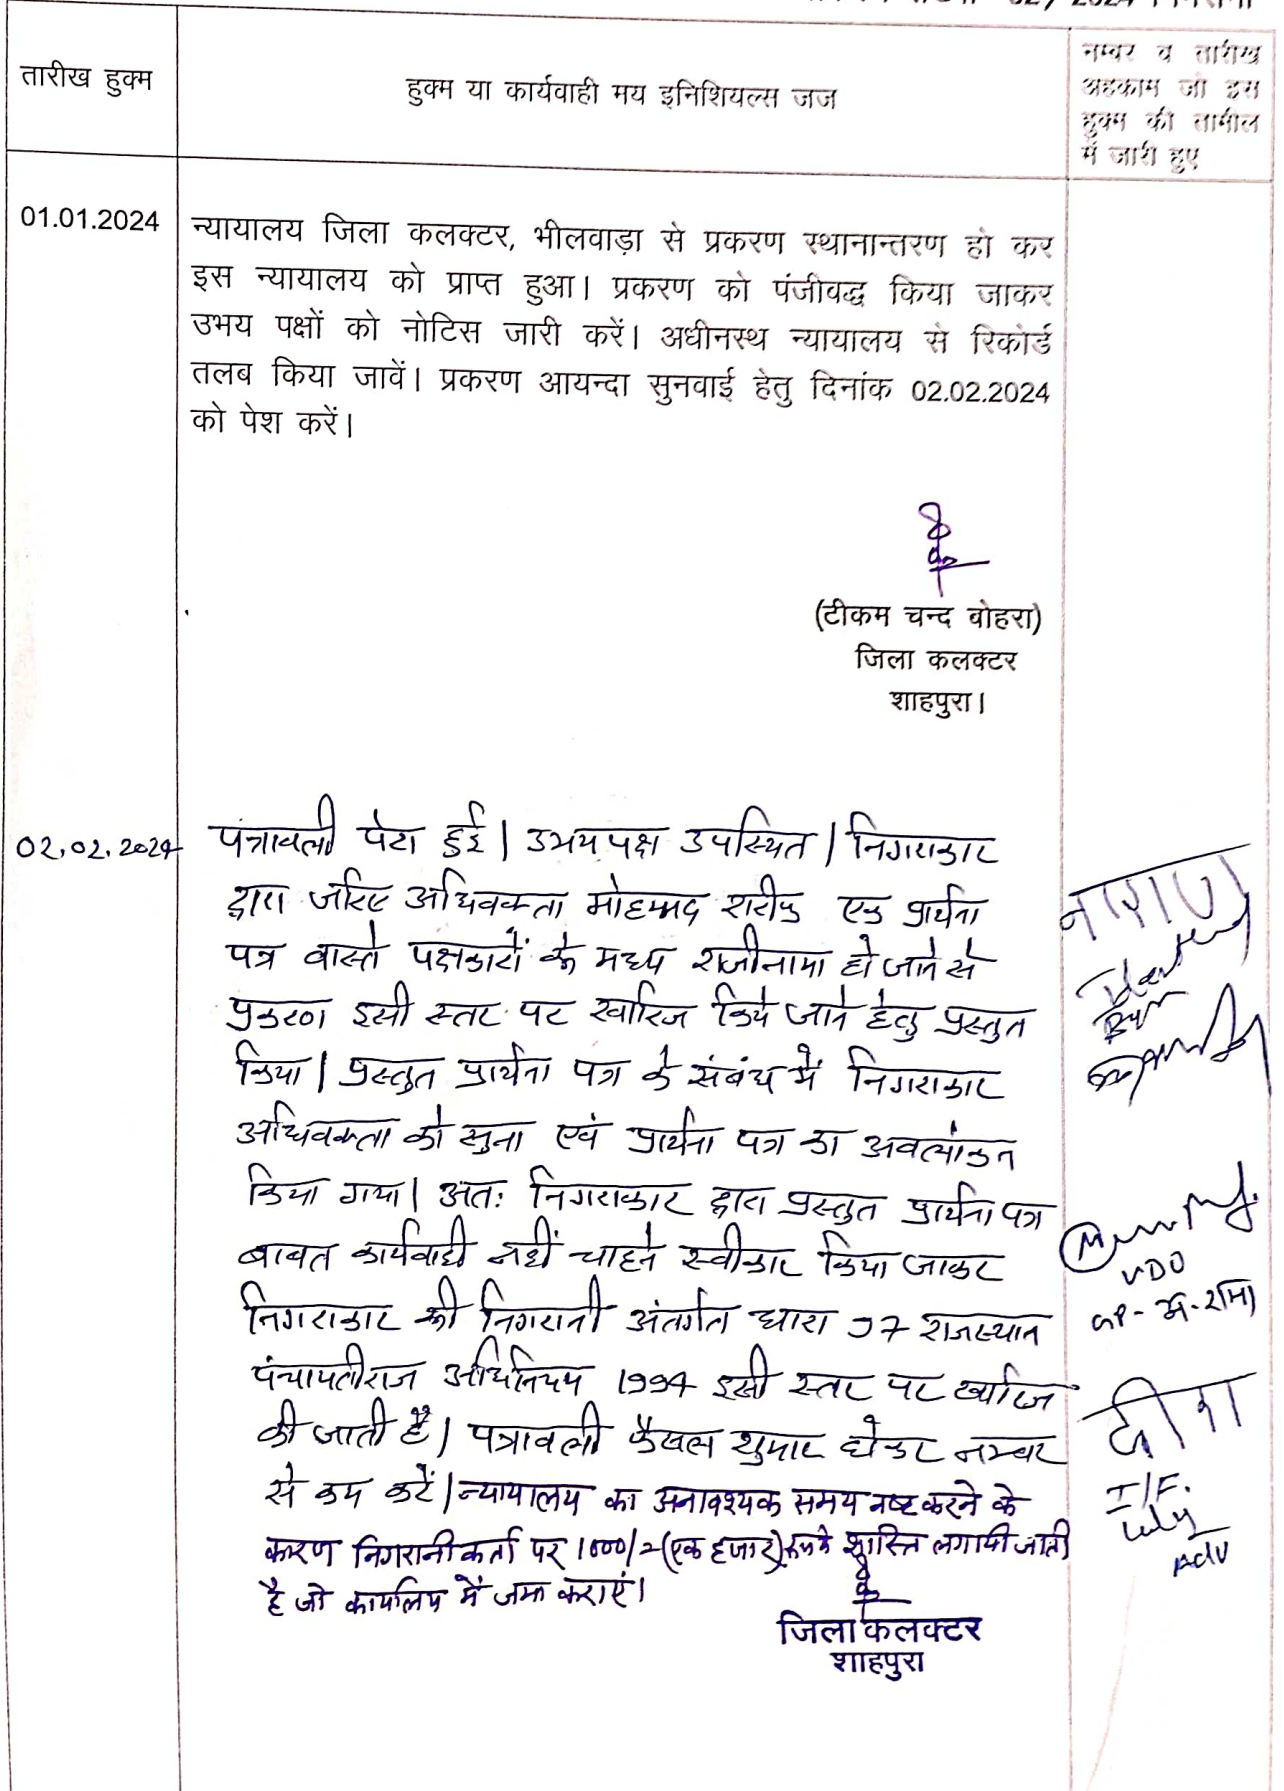 तारीख हुक्म
हुक्म या कार्यवाही मय इनिशियल्स जज
नम्बर व तारीख
अहकाम जो इस
हुक्म की तामील
में जारी हुए
01.01.2024
न्यायालय जिला कलक्टर, भीलवाड़ा से प्रकरण स्थानान्तरण हो कर
इस न्यायालय को प्राप्त हुआ। प्रकरण को पंजीबद्ध किया जाकर
उभय पक्षों को नोटिस जारी करें। अधीनस्थ न्यायालय से रिकोर्ड
तलब किया जावें। प्रकरण आयन्दा सुनवाई हेतु दिनांक 02.02.2024
को पेश करें।
(टीकम चन्द बोहरा)
जिला कलक्टर
शाहपुरा।
02.02.2024
पत्रावली पेश हुई। उभयपक्ष उपस्थित। निगराकार
द्वारा जरिए अधिवक्ता मोहम्मद शरीफ एक प्रार्थना
पत्र वास्ते पक्षकारों के मध्य राजीनामा हो जाने से
प्रकरण इसी स्तर पर खारिज किये जाने हेतु प्रस्तुत
किया। प्रस्तुत प्रार्थना पत्र के संबंध में निगराकार
अधिवक्ता को सुना एवं प्रार्थना पत्र का अवलोकन
किया गया। अतः निगराकार द्वारा प्रस्तुत प्रार्थना पत्र
बाबत कार्यवाही नहीं चाहने स्वीकार किया जाकर
निगराकार की निगरानी अंतर्गत धारा 97 राजस्थान
पंचायतीराज अधिनियम 1994 इसी स्तर पर खारिज
की जाती है। पत्रावली फैसल शुमार होकर नम्बर
से कम करें। न्यायालय का अनावश्यक समय नष्ट करने के
कारण निगरानीकर्ता पर 1000/= (एक हजार) रूपये शास्ति लगायी जाती
है जो कार्यालय में जमा कराएं।
जिला कलक्टर
शाहपुरा
VDO
I/F.
Adv